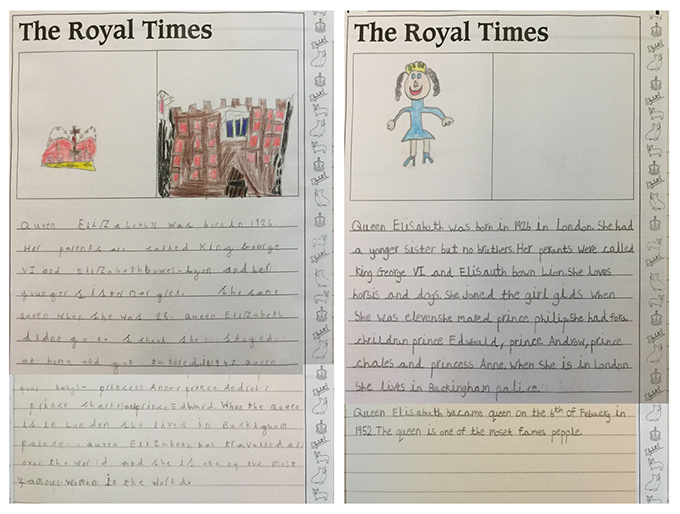 The Royal Times
Queen Elizabeth was born in 1926.
Her parents are called King George
VI and Elizabethbowes-lyon and her
younger sister Margret. She came
queen when she was 25. Queen Elizabeth
didnt go to school she stayed
at home and got
queen
four babys- princess Anne, prince Andrew,
prince Edward. When the queen
is in London she lives in Buckingham
palace. queen Elizabeth has travelled all
over the world and she is one of most
famous woman in the world.
The Royal Times
Queen Elisabuth was born in 1926 in London. She had
a yonger sister but no bruthers. Her perants were called
King George VI and Elisauth bown Lion. She loves
horsis and dogs. She Joned the girl gids when
She was eleven she mared prince philip. She had fora
childran prince Edwauld, prince Andraw, prince
chales and princess Anne. When she is in London
She lives in Buckingham palice.
Queen Elisabuth became queen on the 6th of Febuery in
1952. The queen is one of the moset fames pepple.